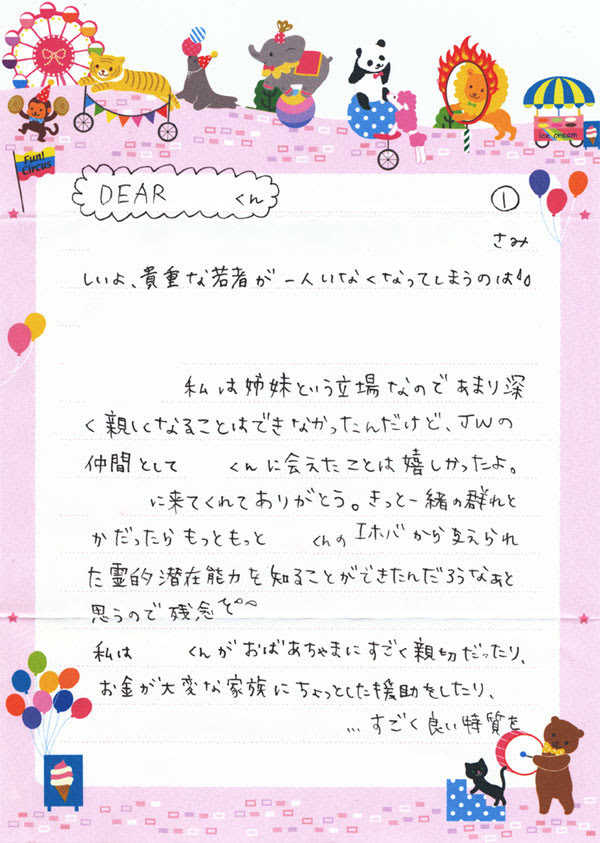 Fun! Circus
ice cream
DEAR くん
①
さみ
しいよ、貴重な若者が一人いなくなってしまうのは
私は姉妹という立場なのであまり深
く親しくなることはできなかったんだけど、JWの
仲間として くんに会えたことは嬉しかったよ。
に来てくれてありがとう。きっと一緒の群れと
かだったらもっともっと くんのエホバから与えられ
た霊的潜在能力を知ることができたんだろうなぁと
思うので残念で。。
私は くんがおばあちゃまにすごく親切だったり、
お金が大変な家族にちょっとした援助をしたり、
…すごく良い特質を